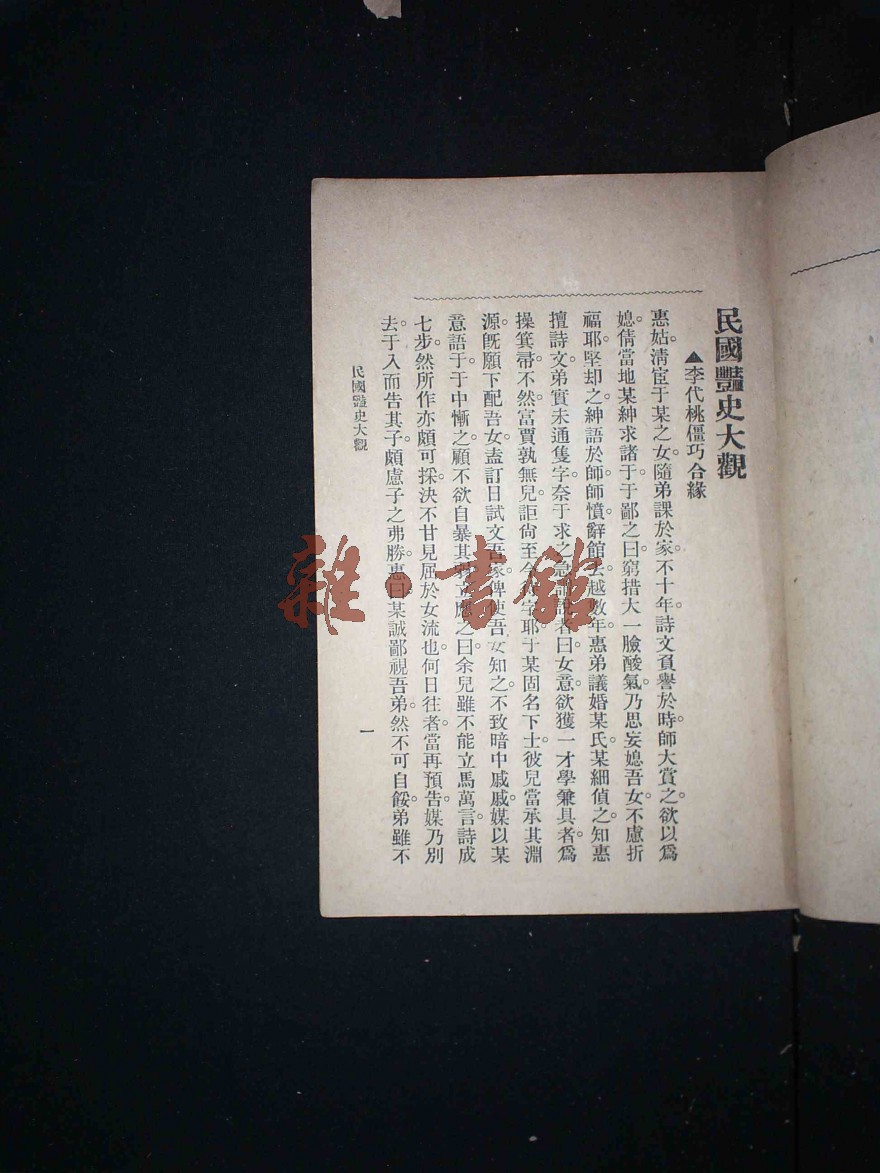 民國豔史大觀
▲李代桃僵巧合緣
惠姑。清宦于某之女。隨弟課於家。不十年。詩文頁譽於時。師大賞之。欲以爲
媳。倩當地某紳求諸于。于鄙之曰。窮措大一臉酸氣。乃思妄媳吾女。不慮折
福耶。堅却之。紳語於師。師憤。辭館去。越數年。惠弟議婚某氏。某細偵之。知惠
擅詩文。弟實未通隻字。奈于求之急。者曰。女意欲獲一才學兼具者。爲
操箕帚。不然。富賈孰無兒。詎尙至今字耶。于某固名下士。彼兒當承其淵
源。旣願下配吾女。盍訂日試文吾家。俾使吾女知之。不致暗中戚戚。媒以某
意語于。于中慚之。顧不欲自暴其。立應之曰。余兒雖不能立馬萬言。詩成
七步。然所作亦頗可採。決不甘見屈於女流也。何日往者。當再預告。媒乃別
去。于入而告其子。頗慮子之弗勝。惠曰。某誠鄙視吾弟。然不可自餒。弟雖不
民國豔史大觀
一
雜·書館